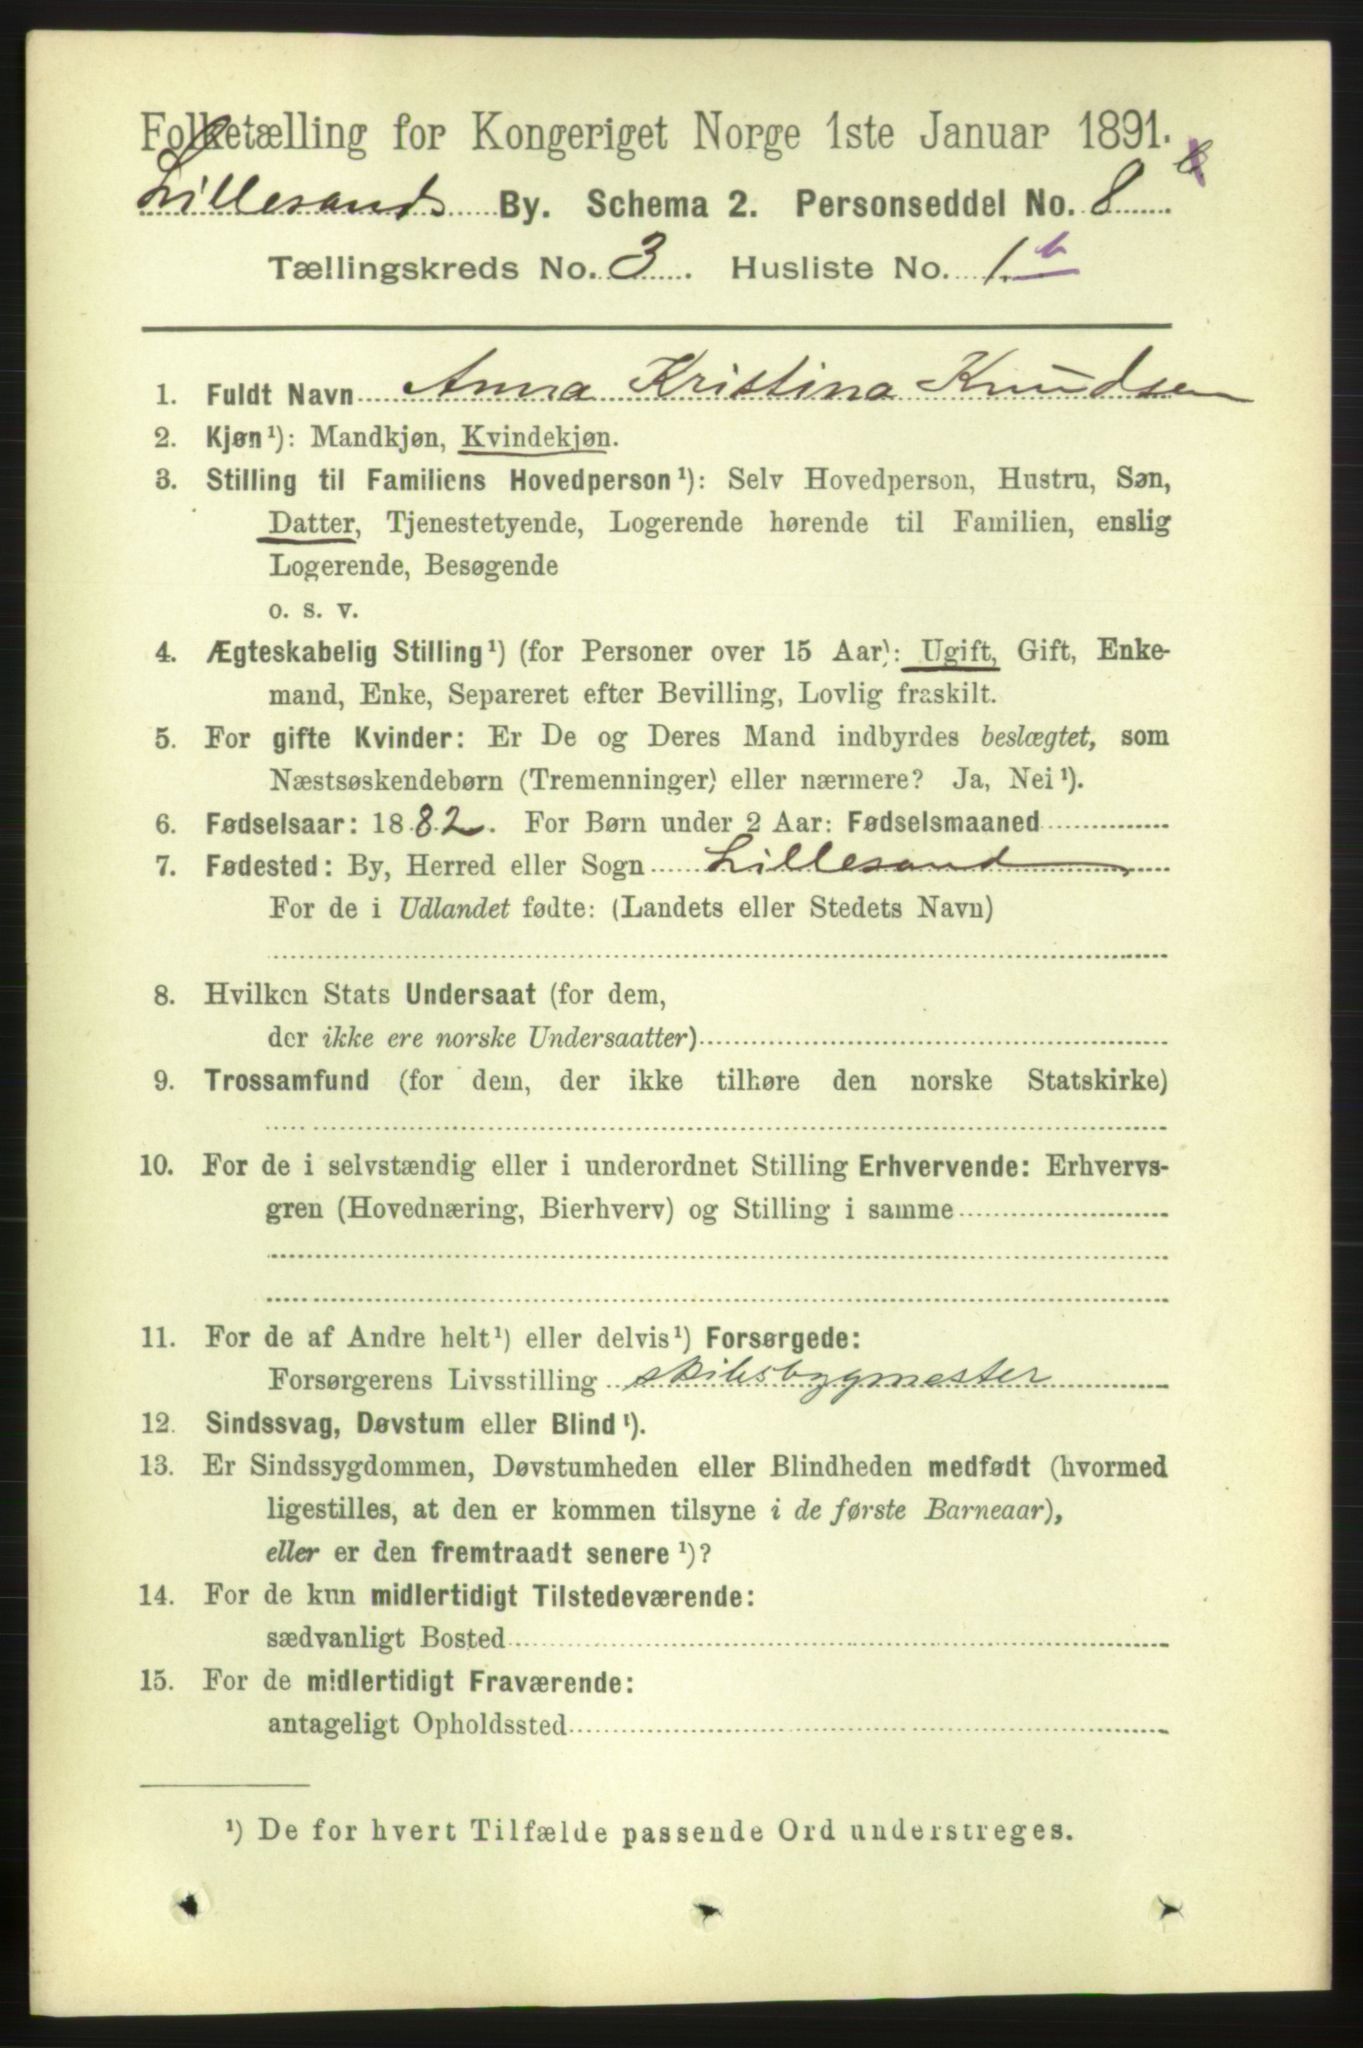 Folketælling for Kongeriget Norge 1ste Januar 1891.
Lillesands By. Schema 2. Personseddel No. 8
Tællingskreds No. 3. Husliste No. 1 b
1. Fuldt Navn Anna Kristina Knudsen
2. Kjøn¹): Mandkjøn, Kvindekjøn.
3. Stilling til Familiens Hovedperson¹): Selv Hovedperson, Hustru, Søn,
Datter, Tjenestetyende, Logerende hørende til Familien, enslig
Logerende, Besøgende
o. s. v.
4. Ægteskabelig Stilling¹) (for Personer over 15 Aar): Ugift, Gift, Enke-
mand, Enke, Separeret efter Bevilling, Lovlig fraskilt.
5. For gifte Kvinder: Er De og Deres Mand indbyrdes beslægtet, som
Næstsøskendebørn (Tremenninger) eller nærmere? Ja, Nei¹).
6. Fødselsaar: 1882. For Børn under 2 Aar: Fødselsmaaned
7. Fødested: By, Herred eller Sogn Lillesand
For de i Udlandet fødte: (Landets eller Stedets Navn)
8. Hvilken Stats Undersaat (for dem,
der ikke ere norske Undersaatter)
9. Trossamfund (for dem, der ikke tilhøre den norske Statskirke)
10. For de i selvstændig eller i underordnet Stilling Erhvervende: Erhvervs-
gren (Hovednæring, Bierhverv) og Stilling i samme
11. For de af Andre helt¹) eller delvis¹) Forsørgede:
Forsørgerens Livsstilling skibsbygmester
12. Sindssvag, Døvstum eller Blind¹).
13. Er Sindssygdommen, Døvstumheden eller Blindheden medfødt (hvormed
ligestilles, at den er kommen tilsyne i de første Barneaar),
eller er den fremtraadt senere¹)?
14. For de kun midlertidigt Tilstedeværende:
sædvanligt Bosted
15. For de midlertidigt Fraværende:
antageligt Opholdssted
¹) De for hvert Tilfælde passende Ord understreges.